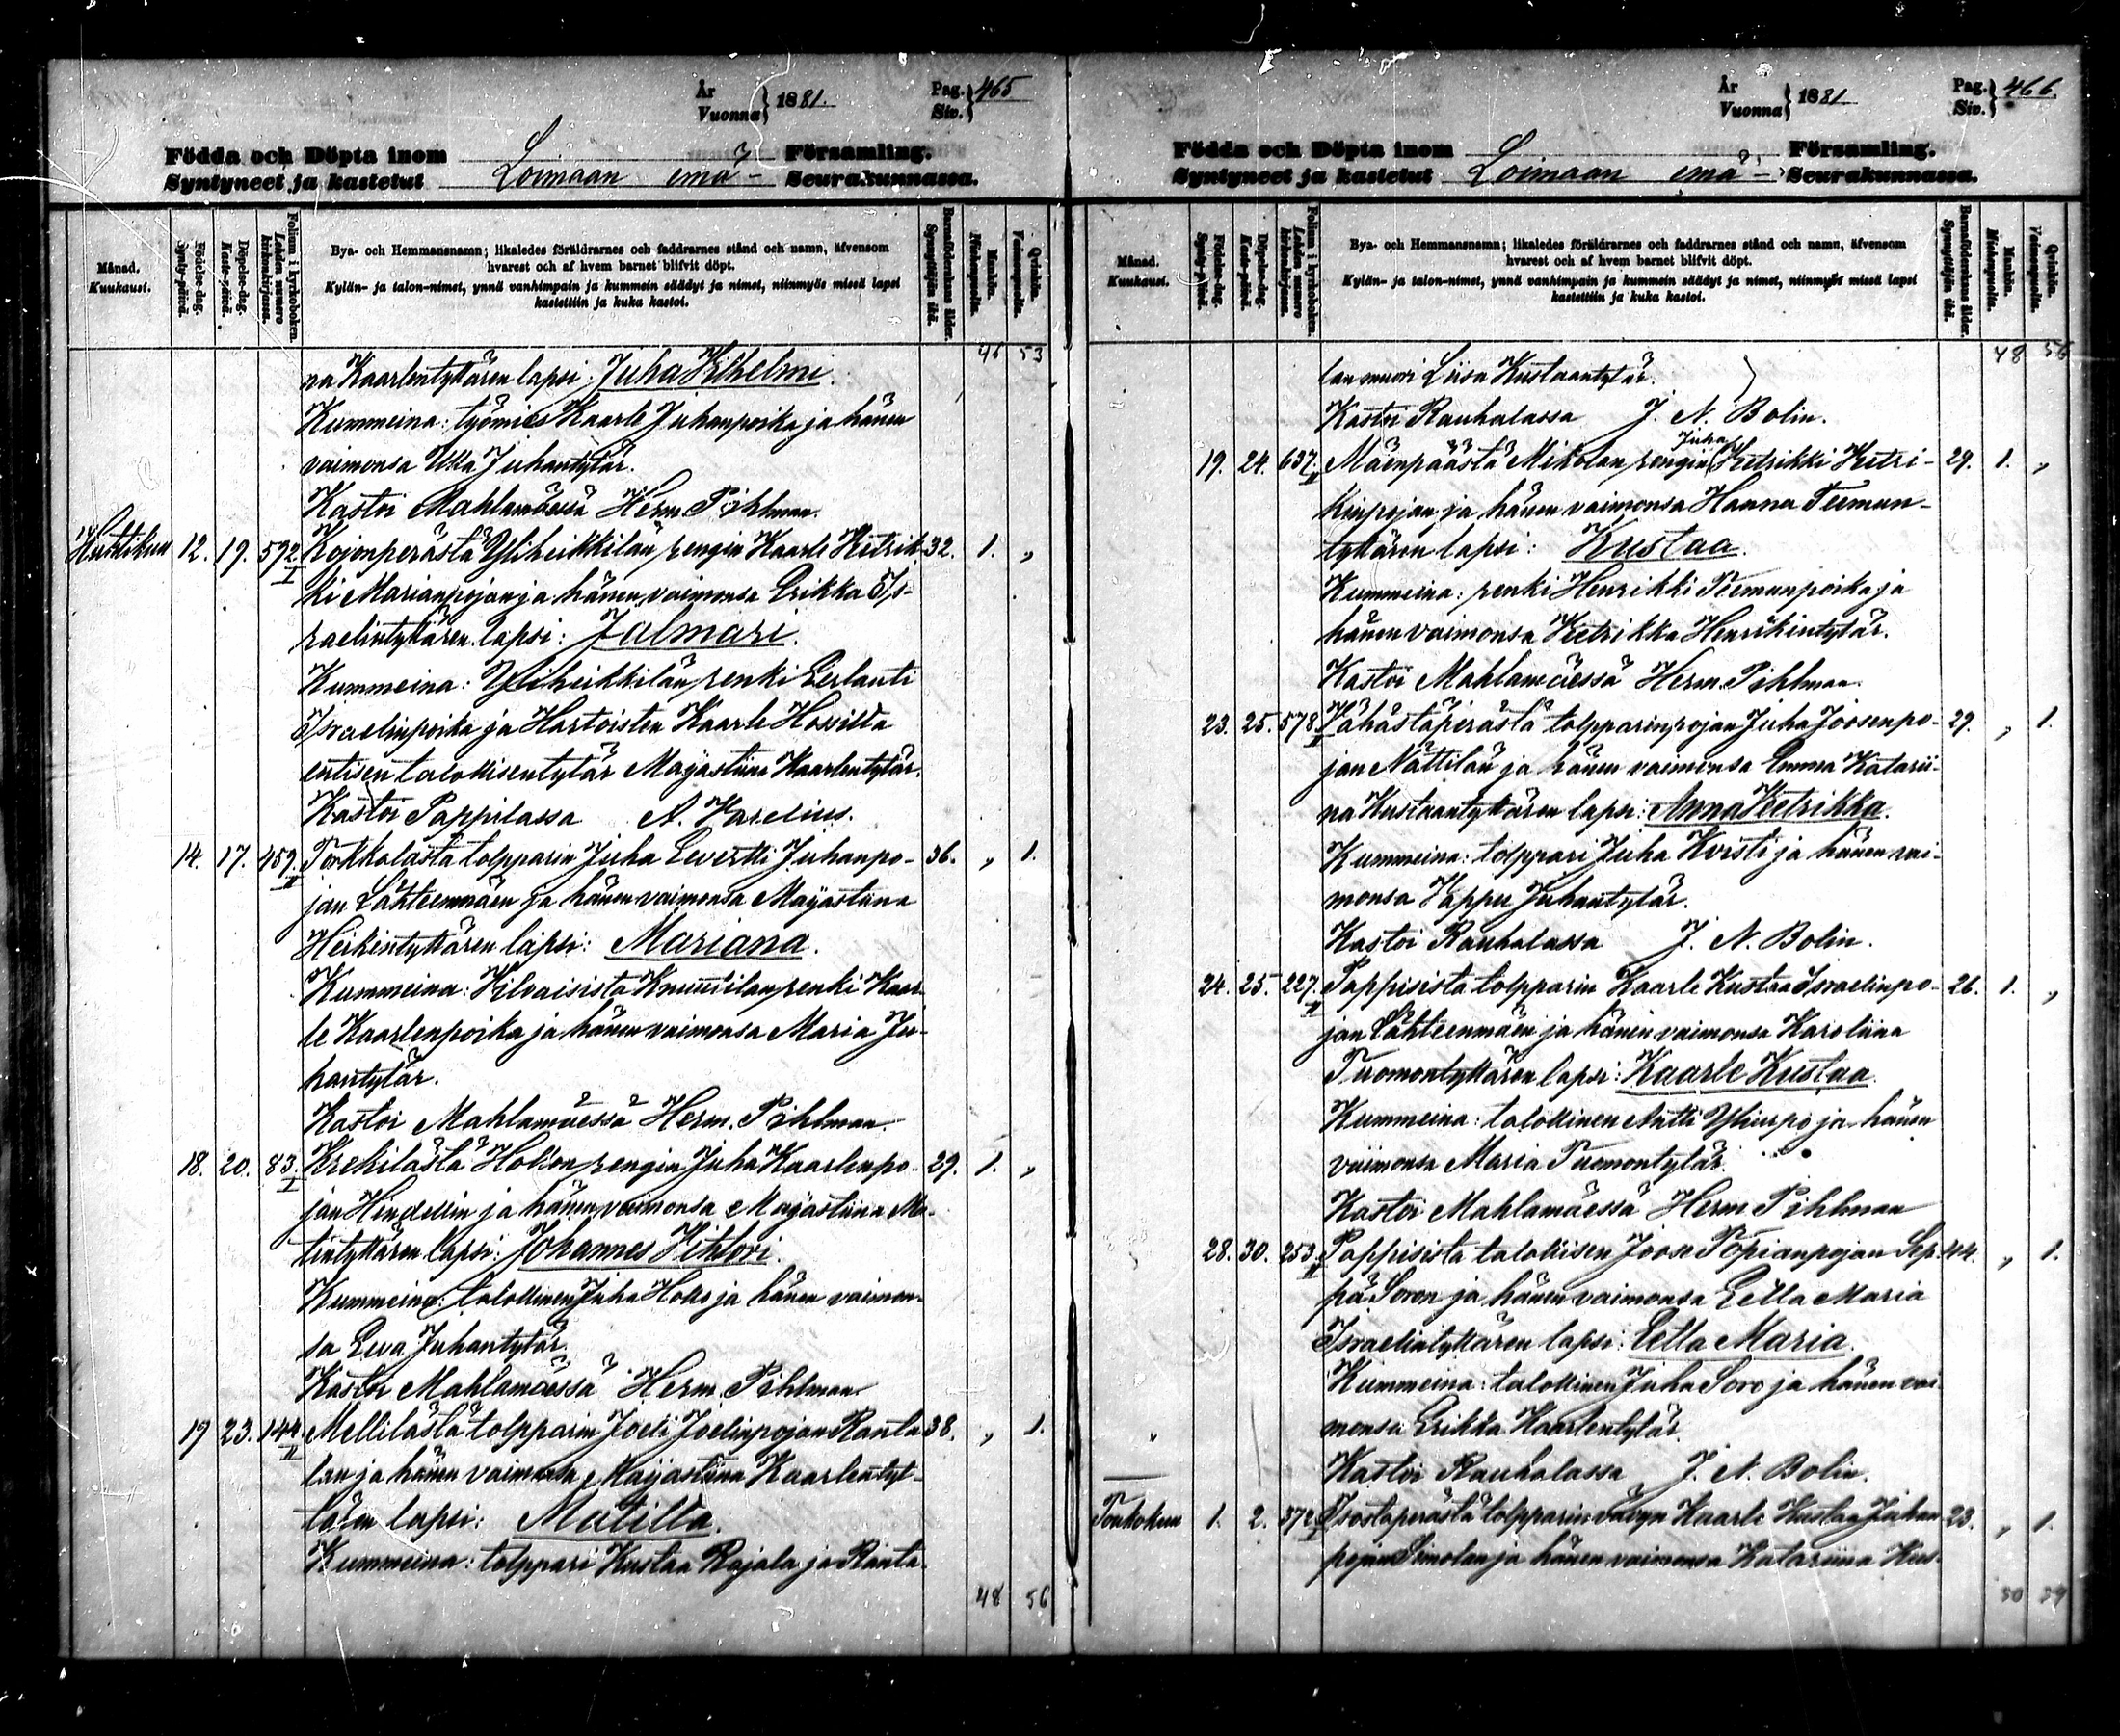 År
Vuonna } 1881.
Pag.
Siv. } 465
Födda och Döpta inom Församling.
Syntyneet ja kastetut Loimaan emä- Seurakunnassa.
Månad.
Kuukausi.
Födelse-dag.
Synty-päivä.
Döpelse-dag.
Kaste-päivä.
Folium i kyrkoboken.
Lehden numero kirkonkirjassa.
Bya- och Hemmansnamn; likaledes föräldrarnes och faddrarnes stånd och namn, äfvensom
hvarest och af hvem barnet blifvit döpt.
Kylän- ja talon-nimet, ynnä vanhimpain ja kummein säädyt ja nimet, niinmyös missä lapsi
kastettiin ja kuka kastoi.
Barnaföderskans ålder.
Synnyttäjän ikä.
Mankön.
Miehenpuolia.
Qvinkön.
Vaimonpuolia.
46 53
na Kaarlentyttären lapsi: Juha Vilhelmi.
Kummeina: työmies Kaarle Juhanpoika ja hänen
vaimonsa Ulla Juhantytär.
Kastoi Mahlamäessä Herm. Pihlman.
Huhtikuu 12. 19. 592. I Kojonperästä Yliheikkilän rengin Kaarle Vetrik- 32. 1. „
ki Marianpojan ja hänen vaimonsa Erikka Is-
raelintyttären lapsi: Jalmari.
Kummeina: Yliheikkilän renki Eerlanti
Israelinpoika ja Hartoisten Kaarle
entisen talollisentytär Majastiina Kaarlentytär.
Kastoi Pappilassa A. Varelius.
14. 17. 459. II Torkkalasta torpparin Juha Evertti Juhanpo- 36. „ 1.
jan Lähteenmäen ja hänen vaimonsa Majastiina
Heikintyttären lapsi: Mariana.
Kummeina: Vilvaisista Knuutilan renki Kaar-
le Kaarlenpoika ja hänen vaimonsa Maria Ju-
hantytär.
Kastoi Mahlamäessä Herm. Pihlman.
18. 20. 83. I Krekilästä rengin Juha Kaarlenpo- 29. 1. „
jan Hindellin ja hänen vaimonsa Majastiina Ma-
tintyttären lapsi: Johannes Vihtori.
Kummeina: talollinen Juha ja hänen vaimon-
sa Eeva Juhantytär.
Kastoi Mahlamäessä Herm. Pihlman.
19 23. 144. II Mellilästä torpparin Joeli Joelinpojan Ranta- 38. „ 1.
lan ja hänen vaimonsa Maijastiina Kaarlentyt-
tären lapsi: Matilda.
Kummeina: torppari Kustaa Rajala ja Ranta-
48 56
År
Vuonna } 1881
Pag.
Siv. } 466.
Födda och Döpta inom Församling.
Syntyneet ja kastetut Loimaan emä- Seurakunnassa.
Månad.
Kuukausi.
Födelse-dag.
Synty-päivä.
Döpelse-dag.
Kaste-päivä.
Folium i kyrkoboken.
Lehden numero kirkonkirjassa.
Bya- och Hemmansnamn; likaledes föräldrarnes och faddrarnes stånd och namn, äfvensom
hvarest och af hvem barnet blifvit döpt.
Kylän- ja talon-nimet, ynnä vanhimpain ja kummein säädyt ja nimet, niinmyös missä lapsi
kastettiin ja kuka kastoi.
Barnaföderskans ålder.
Synnyttäjän ikä.
Mankön.
Miehenpuolia.
Qvinkön.
Vaimonpuolia.
48 56
lan muori Liisa Kustaantytär.
Kastoi Rauhalassa J. N. Bolin.
Juha
19. 24. 637. II Mäenpäästä Mikolan rengin Vetrikki Vetri- 29. 1. „
kinpojan ja hänen vaimonsa Hanna Teemun-
tyttären lapsi: Kustaa.
Kummeina: renki Henrikki Teemunpoika ja
hänen vaimonsa Vetrikka Henrikintytär.
Kastoi Mahlamäessä Herm. Pihlman.
23. 25. 578. II Vähästäperästä torpparinpojan Juha Joosenpo- 29. „ 1.
jan Nättilän ja hänen vaimonsa Emma Katarii-
na Kustaantyttären lapsi: Anna Vetrikka.
Kummeina: torppari Juha Korsti ja hänen vai-
monsa Vappu Juhantytär.
Kastoi Rauhalassa J. N. Bolin.
24. 25. 227. II Pappisista torpparin Kaarle Kustaa Israelinpo- 26. 1. „
jan Lähteenmäen ja hänen vaimonsa Karoliina
Tuomontyttären lapsi: Kaarle Kustaa.
Kummeina: talollinen Antti Yliuspo ja hänen
vaimonsa Maria Tuomontytär.
Kastoi Mahlamäessä Herm. Pihlman
28. 30. 253. II Pappisista talollisen Joose Topianpojan Sep- 44. „ 1.
pä Soron ja hänen vaimonsa Eella Maria
Israelintyttären lapsi: Eella Maria.
Kummeina: talollinen Juha Soro ja hänen vai-
monsa Erikka Kaarlentytär.
Kastoi Rauhalassa J. N. Bolin.
Toukokuu 1. 2. 372. Isostaperästä torpparin vävyn Kaarle Kustaa Juhan- 23. „ 1.
pojan Simolan ja hänen vaimonsa Katariina Kus-
50 59